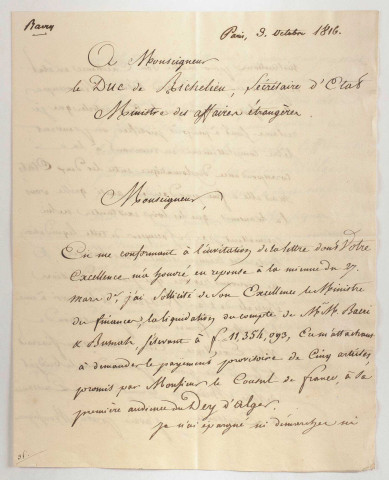 Bacry
Paris, 3. Octobre 1816.
A Monseigneur
le Duc de Richelieu, Secrétaire d'Etat
Ministre des affaires étrangères.
Monseigneur,
En me conformant à l'invitation de la lettre dont Votre
Excellence m'a honoré, en réponse à la mienne du 27.
mars dr, j'ai sollicité de Son Excellence le Ministre
des finances, la liquidation du compte de MM. Bacri
& Busnah, s'élevant à f. 11,354,093, en m'attachant
à demander le payement provisoire de Cinq articles,
promis par Monsieur le Consul de france, à la
première audience du Dey d'Alger.
Je n'ai épargné ni démarches ni